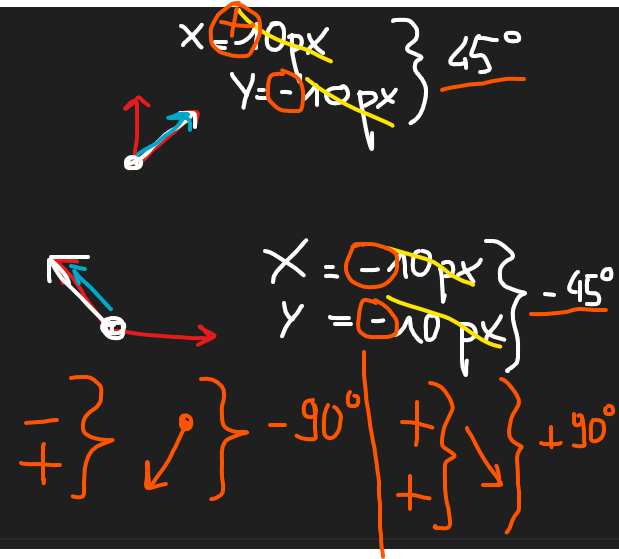 X=+10px
Y=-10px
} 45°
X = -10px
Y = -10px
} -45°
-
+
} } -90°
+
+
} } +90°